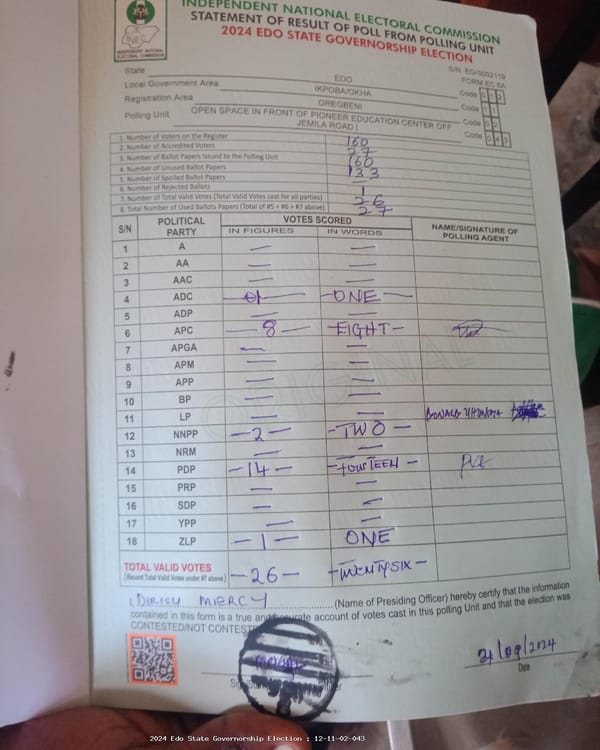 INDEPENDENT NATIONAL ELECTORAL COMMISSION
STATEMENT OF RESULT OF POLL FROM POLLING UNIT
2024 EDO STATE GOVERNORSHIP ELECTION
INEC
INDEPENDENT NATIONAL ELECTORAL COMMISSION
S/N: EG/0002119
FORM EC 8A
State EDO Code 1 2
Local Government Area IKPOBA/OKHA Code 1 1
Registration Area OREGBENI Code 0 2
Polling Unit OPEN SPACE IN FRONT OF PIONEER EDUCATION CENTER OFF JEMILA ROAD I Code 0 4 3
1. Number of Voters on the Register 160
2. Number of Accredited Voters 27
3. Number of Ballot Papers Issued to the Polling Unit 160
4. Number of Unused Ballot Papers 133
5. Number of Spoiled Ballot Papers —
6. Number of Rejected Ballots 1
7. Number of Total Valid Votes (Total Valid Votes cast for all parties) 26
8. Total Number of Used Ballots Papers (Total of #5 + #6 + #7 above) 27
S/N POLITICAL PARTY VOTES SCORED NAME/SIGNATURE OF POLLING AGENT
IN FIGURES IN WORDS
1 A — —
2 AA — —
3 AAC — —
4 ADC 01 —ONE—
5 ADP — —
6 APC —8— —EIGHT—
7 APGA — —
8 APM — —
9 APP — —
10 BP — —
11 LP — —
12 NNPP —2— —TWO—
13 NRM — —
14 PDP —14— —FOURTEEN—
15 PRP — —
16 SDP — —
17 YPP — —
18 ZLP —1— ONE
TOTAL VALID VOTES —26— —TWENTYSIX—
(Record Total Valid Votes under #7 above)
I, MERCY (Name of Presiding Officer) hereby certify that the information
contained in this form is a true and accurate account of votes cast in this polling Unit and that the election was
CONTESTED/NOT CONTESTED
21/09/2024
Date
ORIGINAL
2024 Edo State Governorship Election : 12-11-02-043